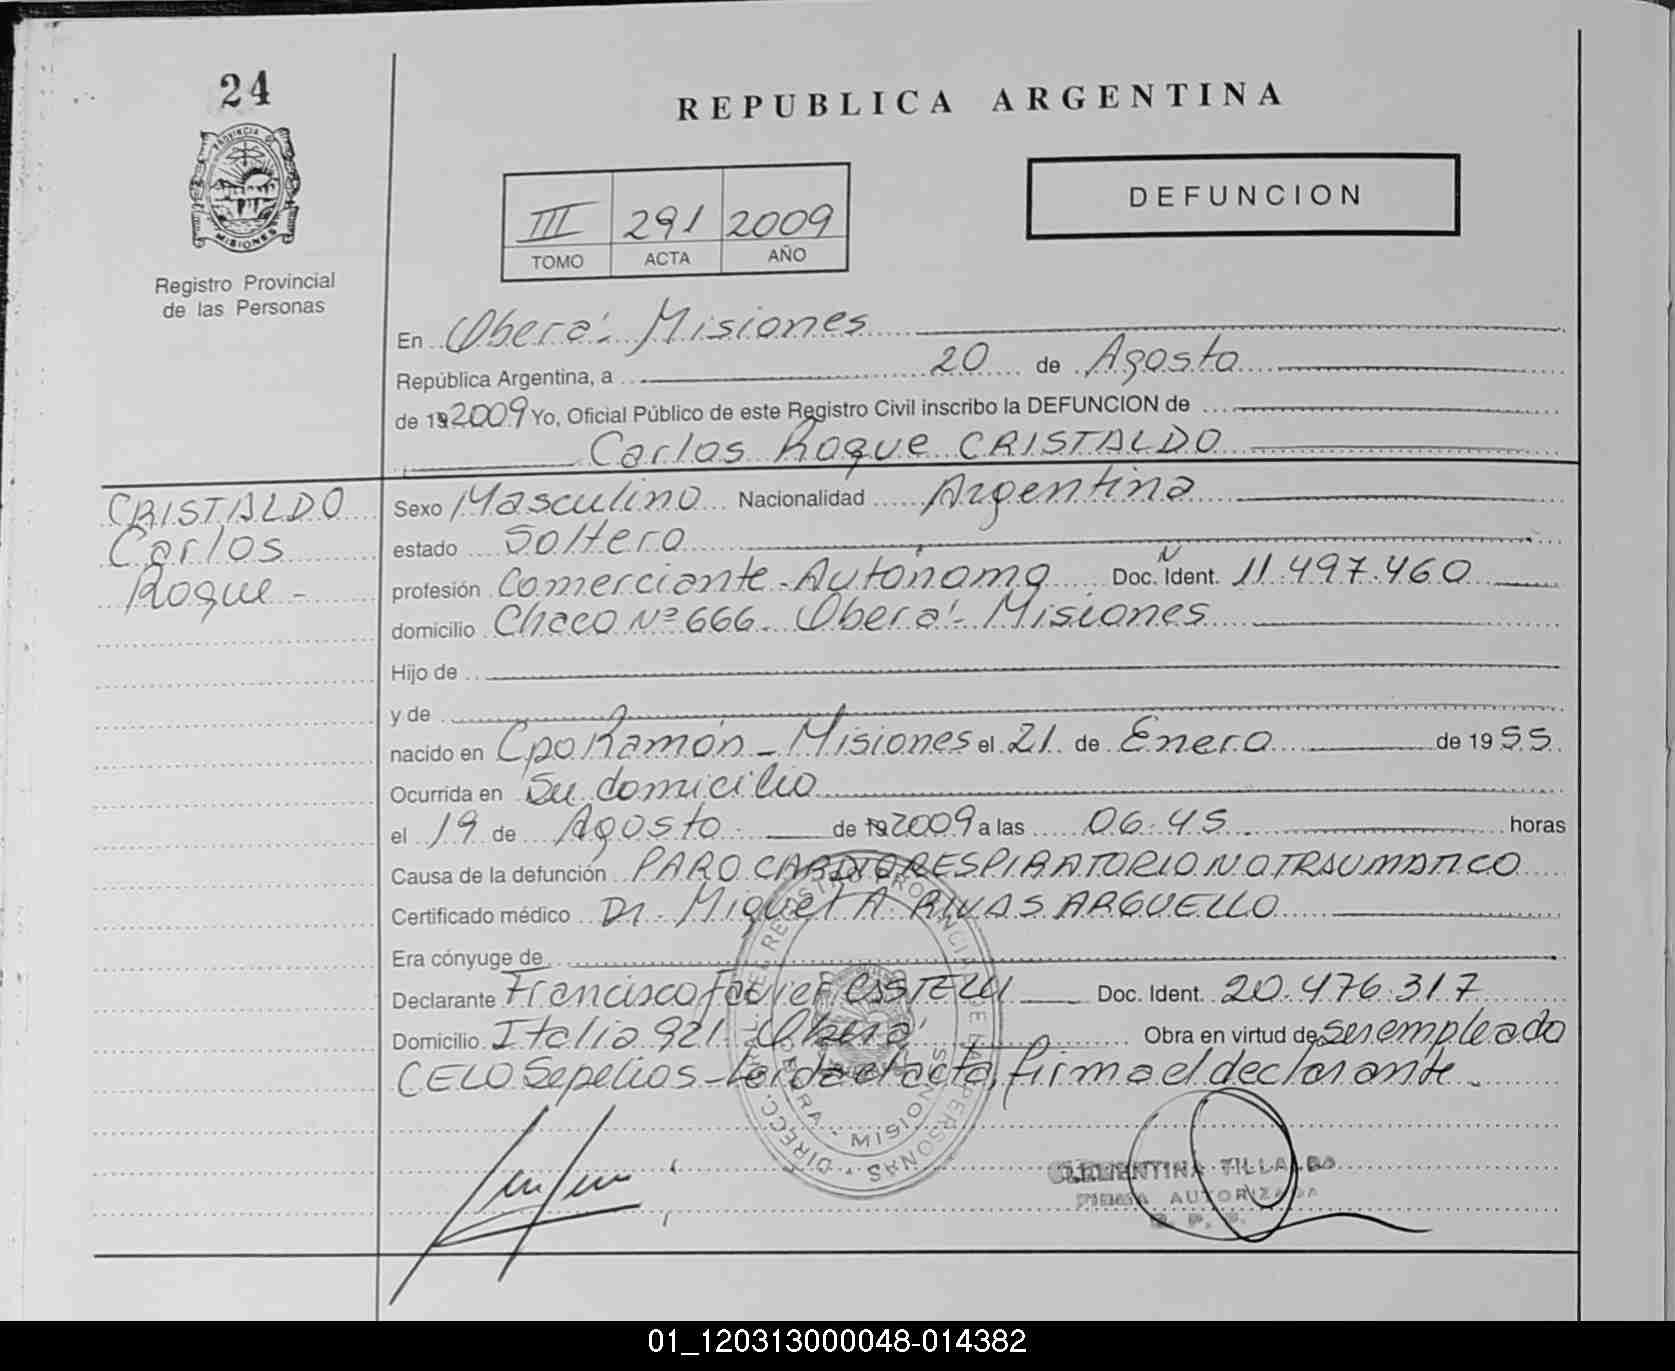 24
REPUBLICA ARGENTINA
PROVINCIA DE MISIONES
Registro Provincial
de las Personas
DEFUNCION
III 291 2009
TOMO ACTA AÑO
En Oberá - Misiones
República Argentina, a 20 de Agosto
de 19 2009 Yo, Oficial Público de este Registro Civil inscribo la DEFUNCION de
Carlos Roque CRISTALDO
CRISTALDO
Carlos
Roque -
Sexo Masculino Nacionalidad Argentina
estado Soltero
profesión Comerciante - Autónomo Doc. Ident. Nº 11.497.460
domicilio Chaco Nº 666 - Oberá - Misiones
Hijo de
y de
nacido en Cpo Ramón - Misiones el 21 de Enero de 1955
Ocurrida en Su domicilio
el 19 de Agosto de 19 2009 a las 06:45 horas
Causa de la defunción PARO CARDIORESPIRATORIO NO TRAUMATICO
Certificado médico Dr. Miguel A RIVAS ARGUELLO
Era cónyuge de
Declarante Francisco Javier Doc. Ident. 20.476.317
Domicilio Italia 921 - Oberá Obra en virtud de ser empleado
CELO Sepelios - Leída el acta, firma el declarante.
DIRECC. GRAL. DEL REGISTRO PROVINCIAL DE LAS PERSONAS
OBERA - MISIONES
CLEMENTINA
FIRMA AUTORIZADA
R. P. P.
01_120313000048-014382